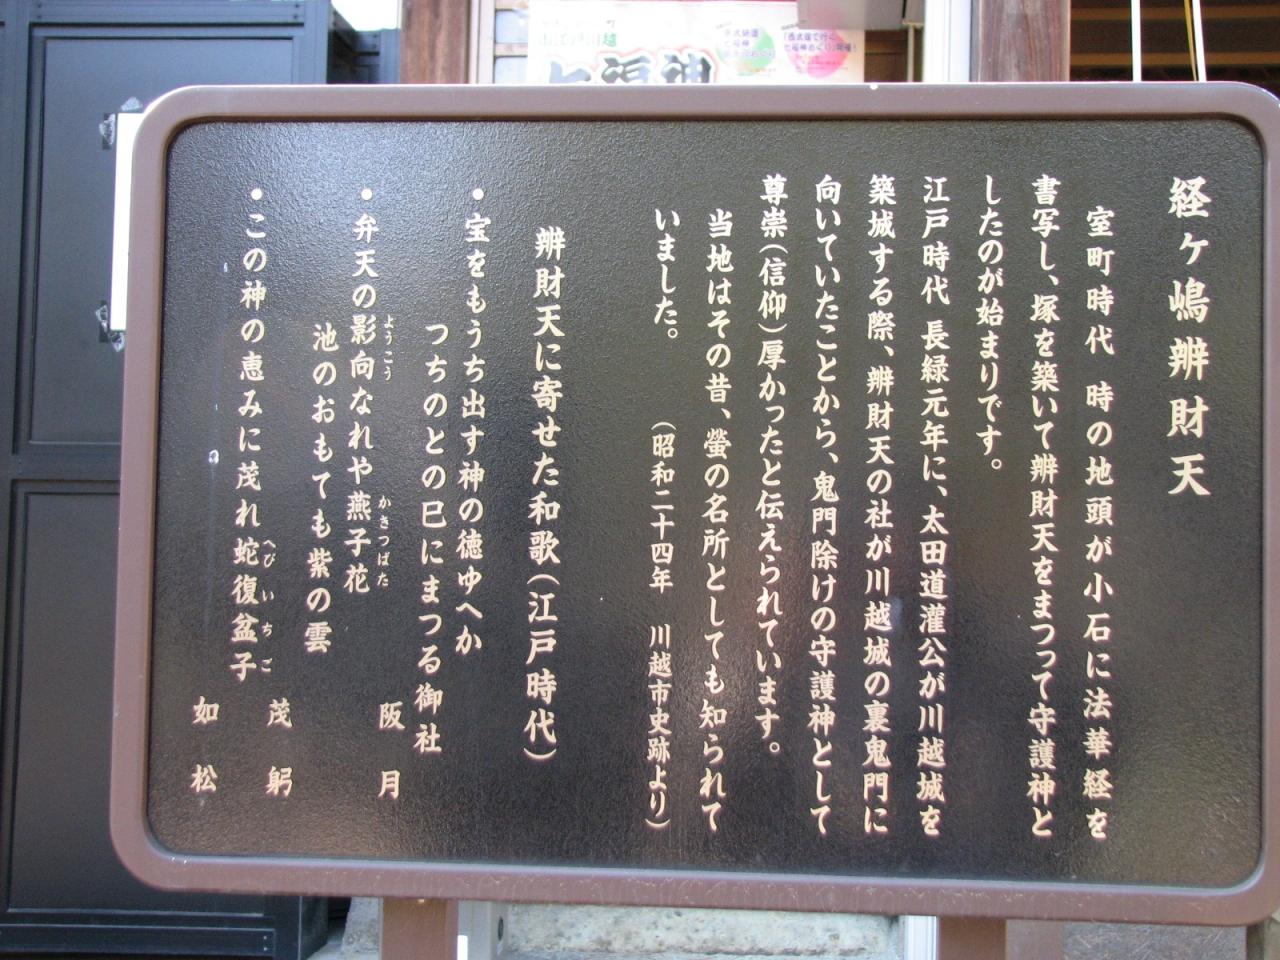 経ヶ嶋辨財天
室町時代 時の地頭が小石に法華経を
書写し、塚を築いて辨財天をまつって守護神と
したのが始まりです。
江戸時代 長緑元年に、太田道灌公が川越城を
築城する際、辨財天の社が川越城の裏鬼門に
向いていたことから、鬼門除けの守護神として
尊崇(信仰)厚かったと伝えられています。
当地はその昔、螢の名所としても知られて
いました。 (昭和二十四年 川越市史跡より)
辨財天に寄せた和歌(江戸時代)
・宝をもうち出す神の徳ゆへか
つちのとの巳にまつる御社
阪月
・弁天の影向なれや燕子花
ようこう
かきつばた
池のおもても紫の雲
茂躬
・この神の恵みに茂れ蛇復盆子
へびいちこ
如松
七福神